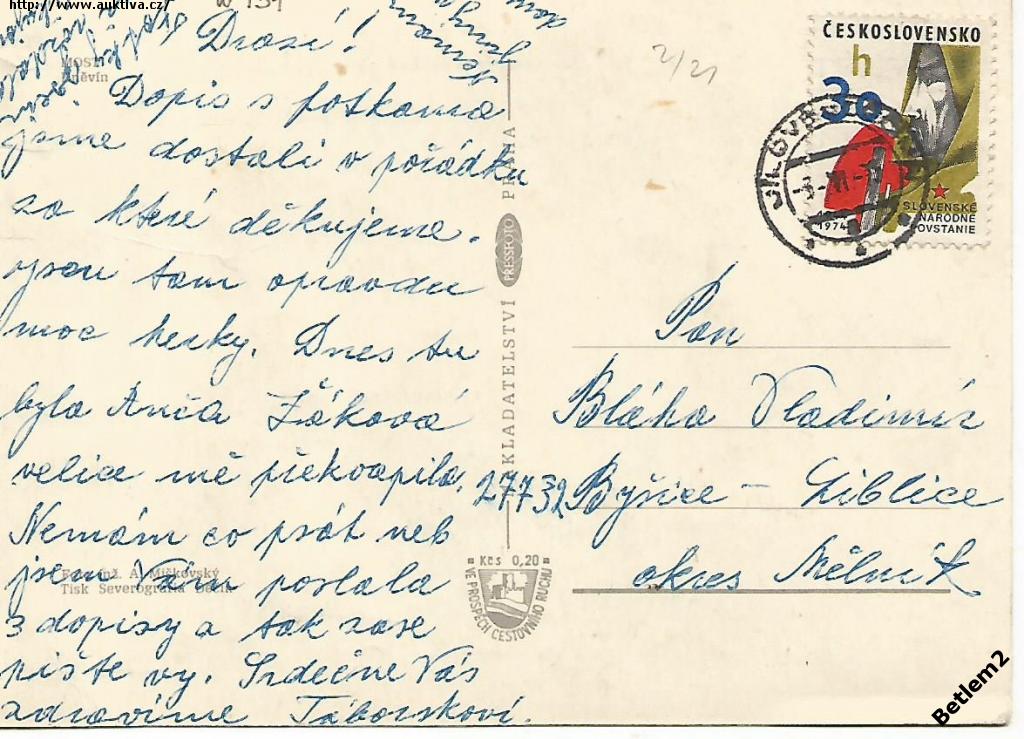 http://www.auktiva.cz/
W 139
2/21
Drazí!
MOST
Hněvín
Dopis s fotkama
jsme dostali v pořádku
za které děkujeme.
jsou tam opravdu
moc hezky. Dnes tu
byla Anča Žáková
velice mě překvapila.
Nemám co psát neb
jsem Vám poslala
3 dopisy a tak zase
pište vy. Srdečne Vás
zdravíme Táborskovi.
A. Mičkovský
Tisk Severografia Děčín
NAKLADATELSTVÍ PRESSFOTO PRAHA
Kčs 0,20
VE PROSPĚCH CESTOVNÍHO RUCHU
ČESKOSLOVENSKO
h
30
SLOVENSKÉ
NÁRODNÉ
POVSTANIE
1974
Pan
Bláha Vladimír
27732 Byšice - Liblice
okres Mělník
Betlem2